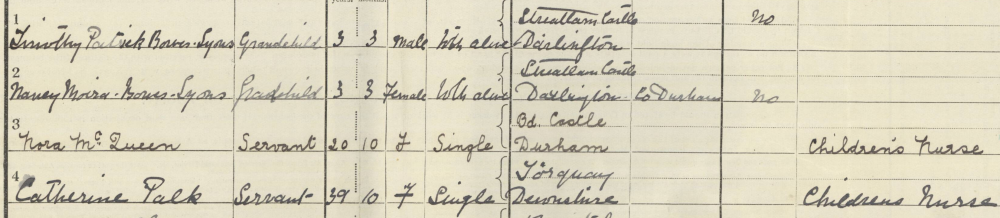 1 Streatlam Castle No
Timothy Patrick Bowes-Lyons Grandchild 3 3 Male Both alive Darlington
2 Streatlam Castle
Nancy Moira-Bowes-Lyons Grandchild 3 3 Female Both alive Darlington Co Durham No
3 Bd. Castle
Nora McQueen Servant 20 10 F Single Durham Children's Nurse
4 Torquay
Catherine Palk Servant 39 10 F Single Devonshire Childrens Nurse